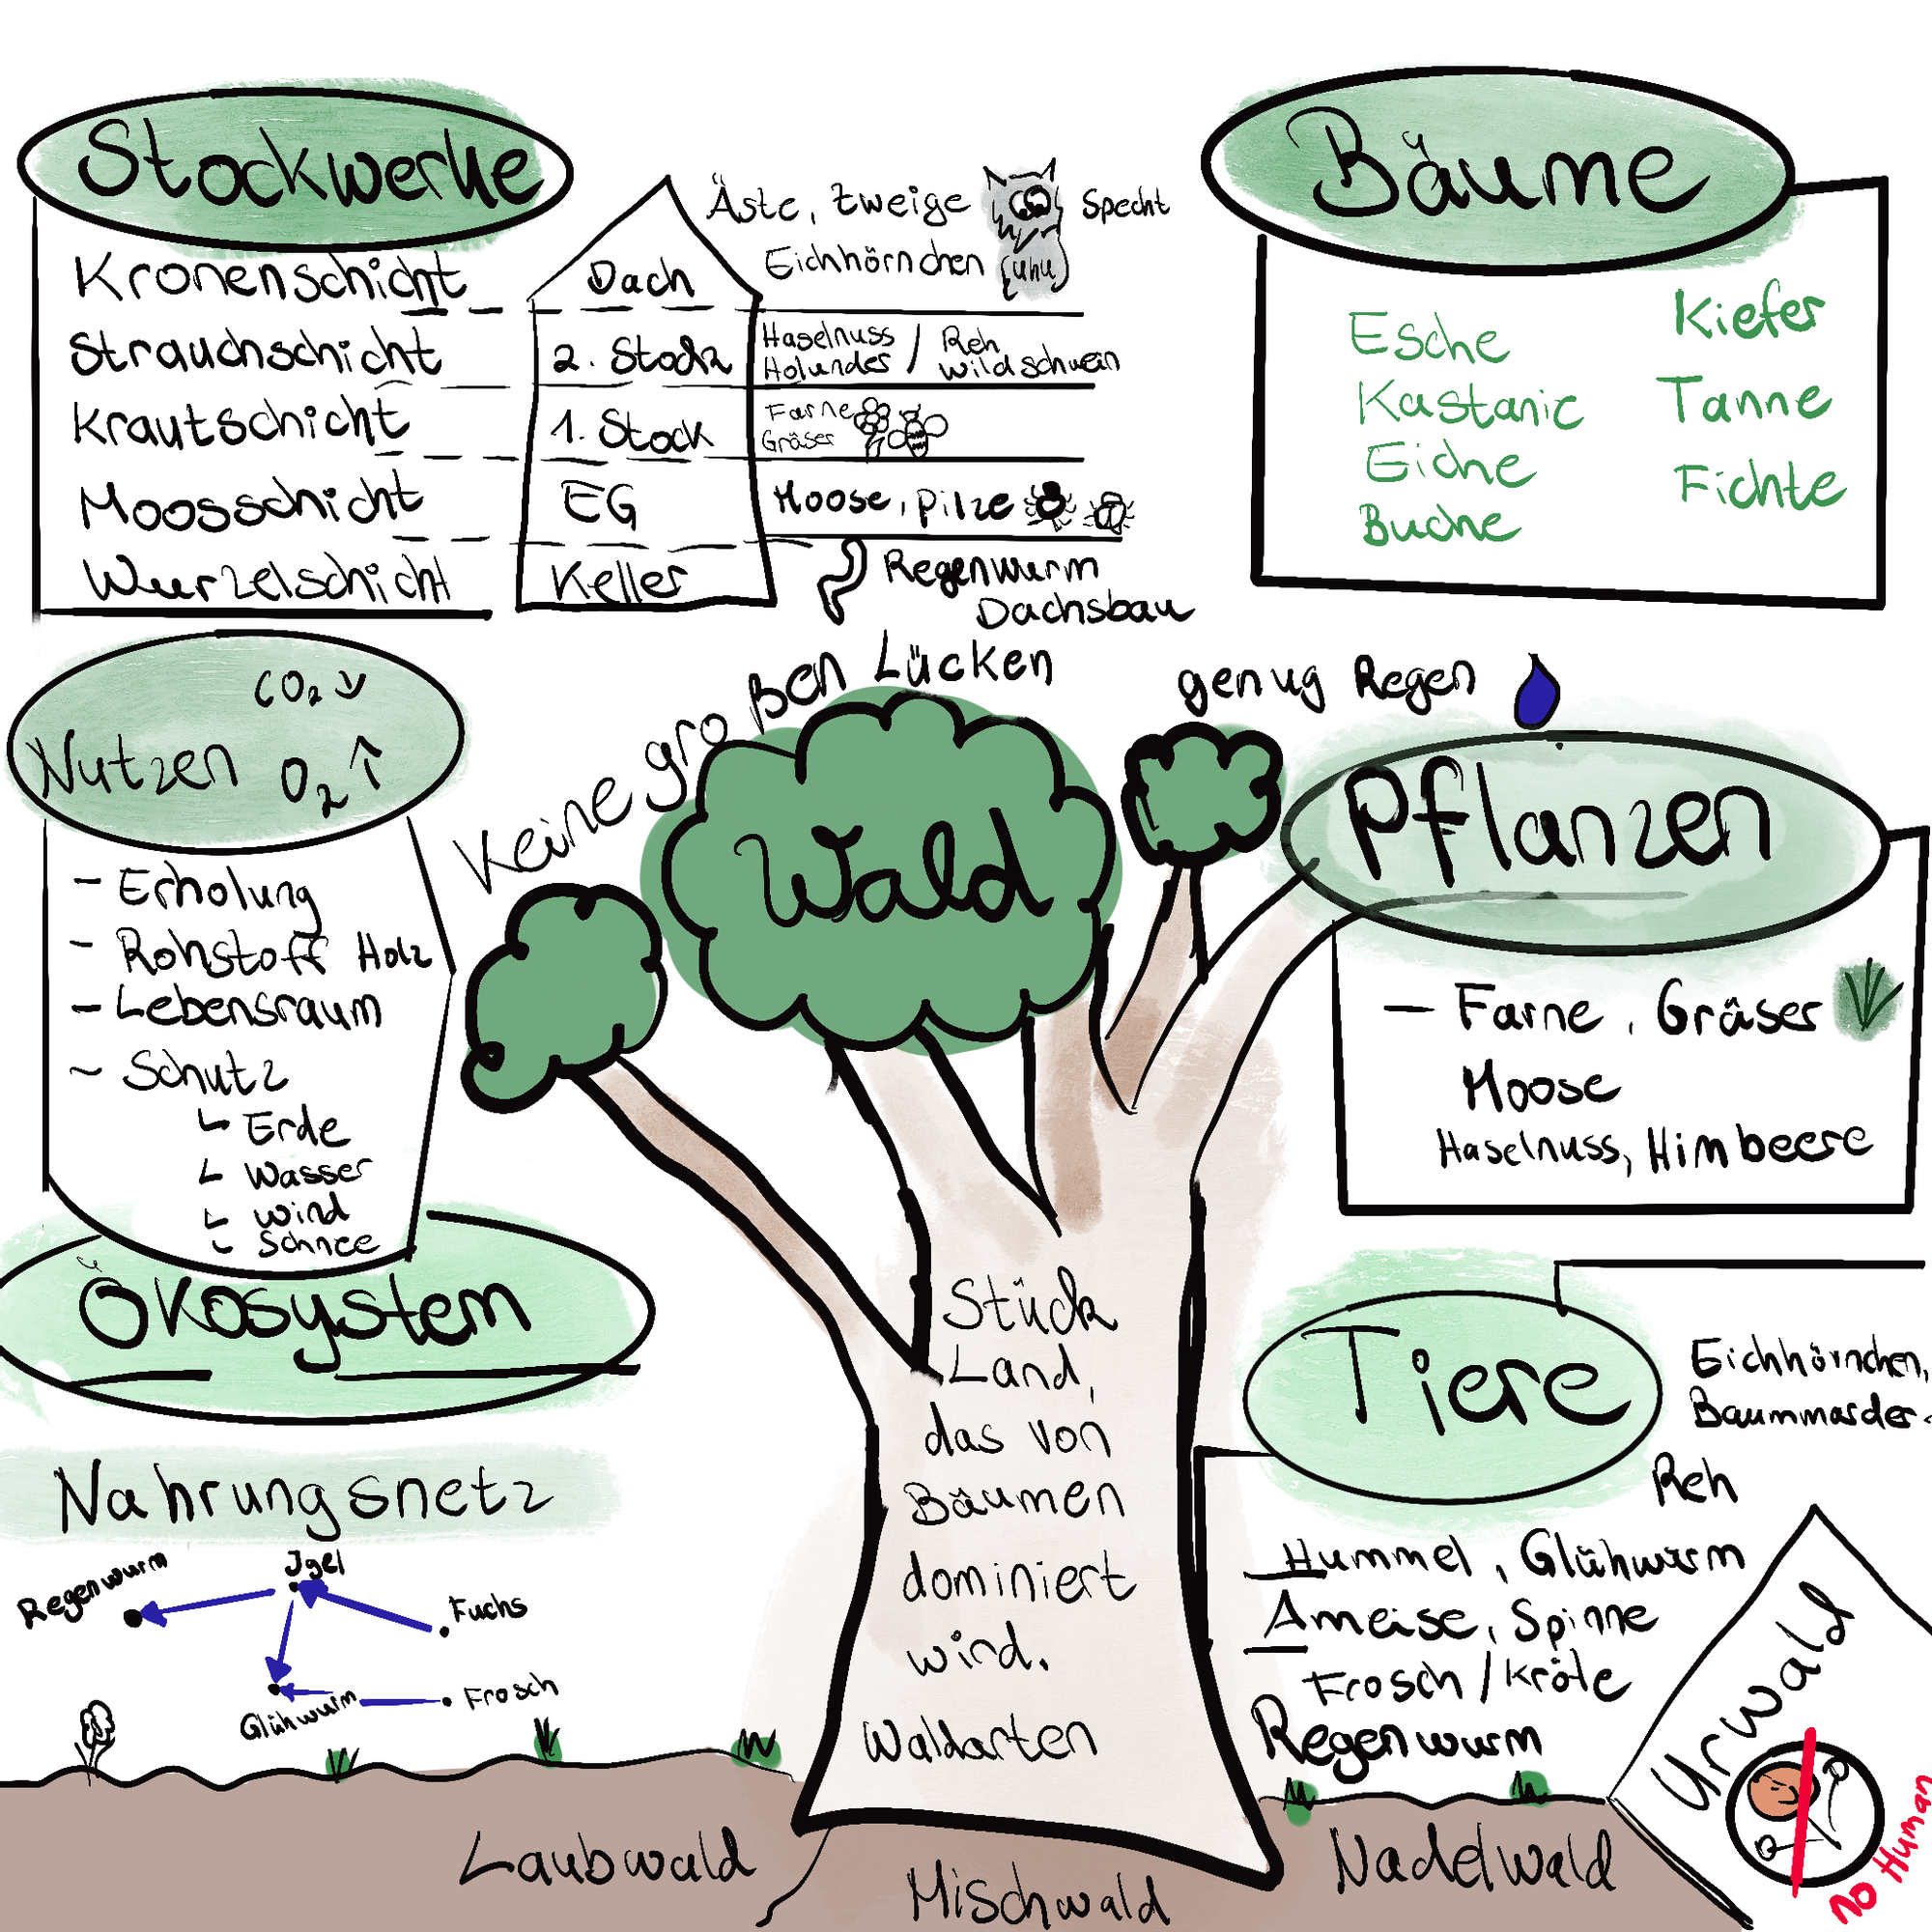 Stockwerke
Kronenschicht
Strauchschicht
Krautschicht
Moosschicht
Wurzelschicht
Dach
2. Stock
1. Stock
EG
Keller
Äste, Zweige
Specht
Eichhörnchen
Uhu
Haselnuss / Reh
Holunder Wildschwein
Farne
Gräser
Moose, Pilze
Regenwurm
Dachsbau
Bäume
Esche
Kastanie
Eiche
Buche
Kiefer
Tanne
Fichte
CO₂ ↓
Nutzen O₂ ↑
- Erholung
- Rohstoff Holz
- Lebensraum
- Schutz
Erde
Wasser
Wind
Schnee
Keine großen Lücken
genug Regen
Wald
Pflanzen
- Farne, Gräser
Moose
Haselnuss, Himbeere
Ökosystem
Nahrungsnetz
Regenwurm
Igel
Fuchs
Glühwurm
Frosch
Stück
Land,
das von
Bäumen
dominiert
wird.
Waldarten
Laubwald
Mischwald
Nadelwald
Tiere
Eichhörnchen,
Baummarder
Reh
Hummel, Glühwurm
Ameise, Spinne
Frosch / Kröte
Regenwurm
Urwald
No Human